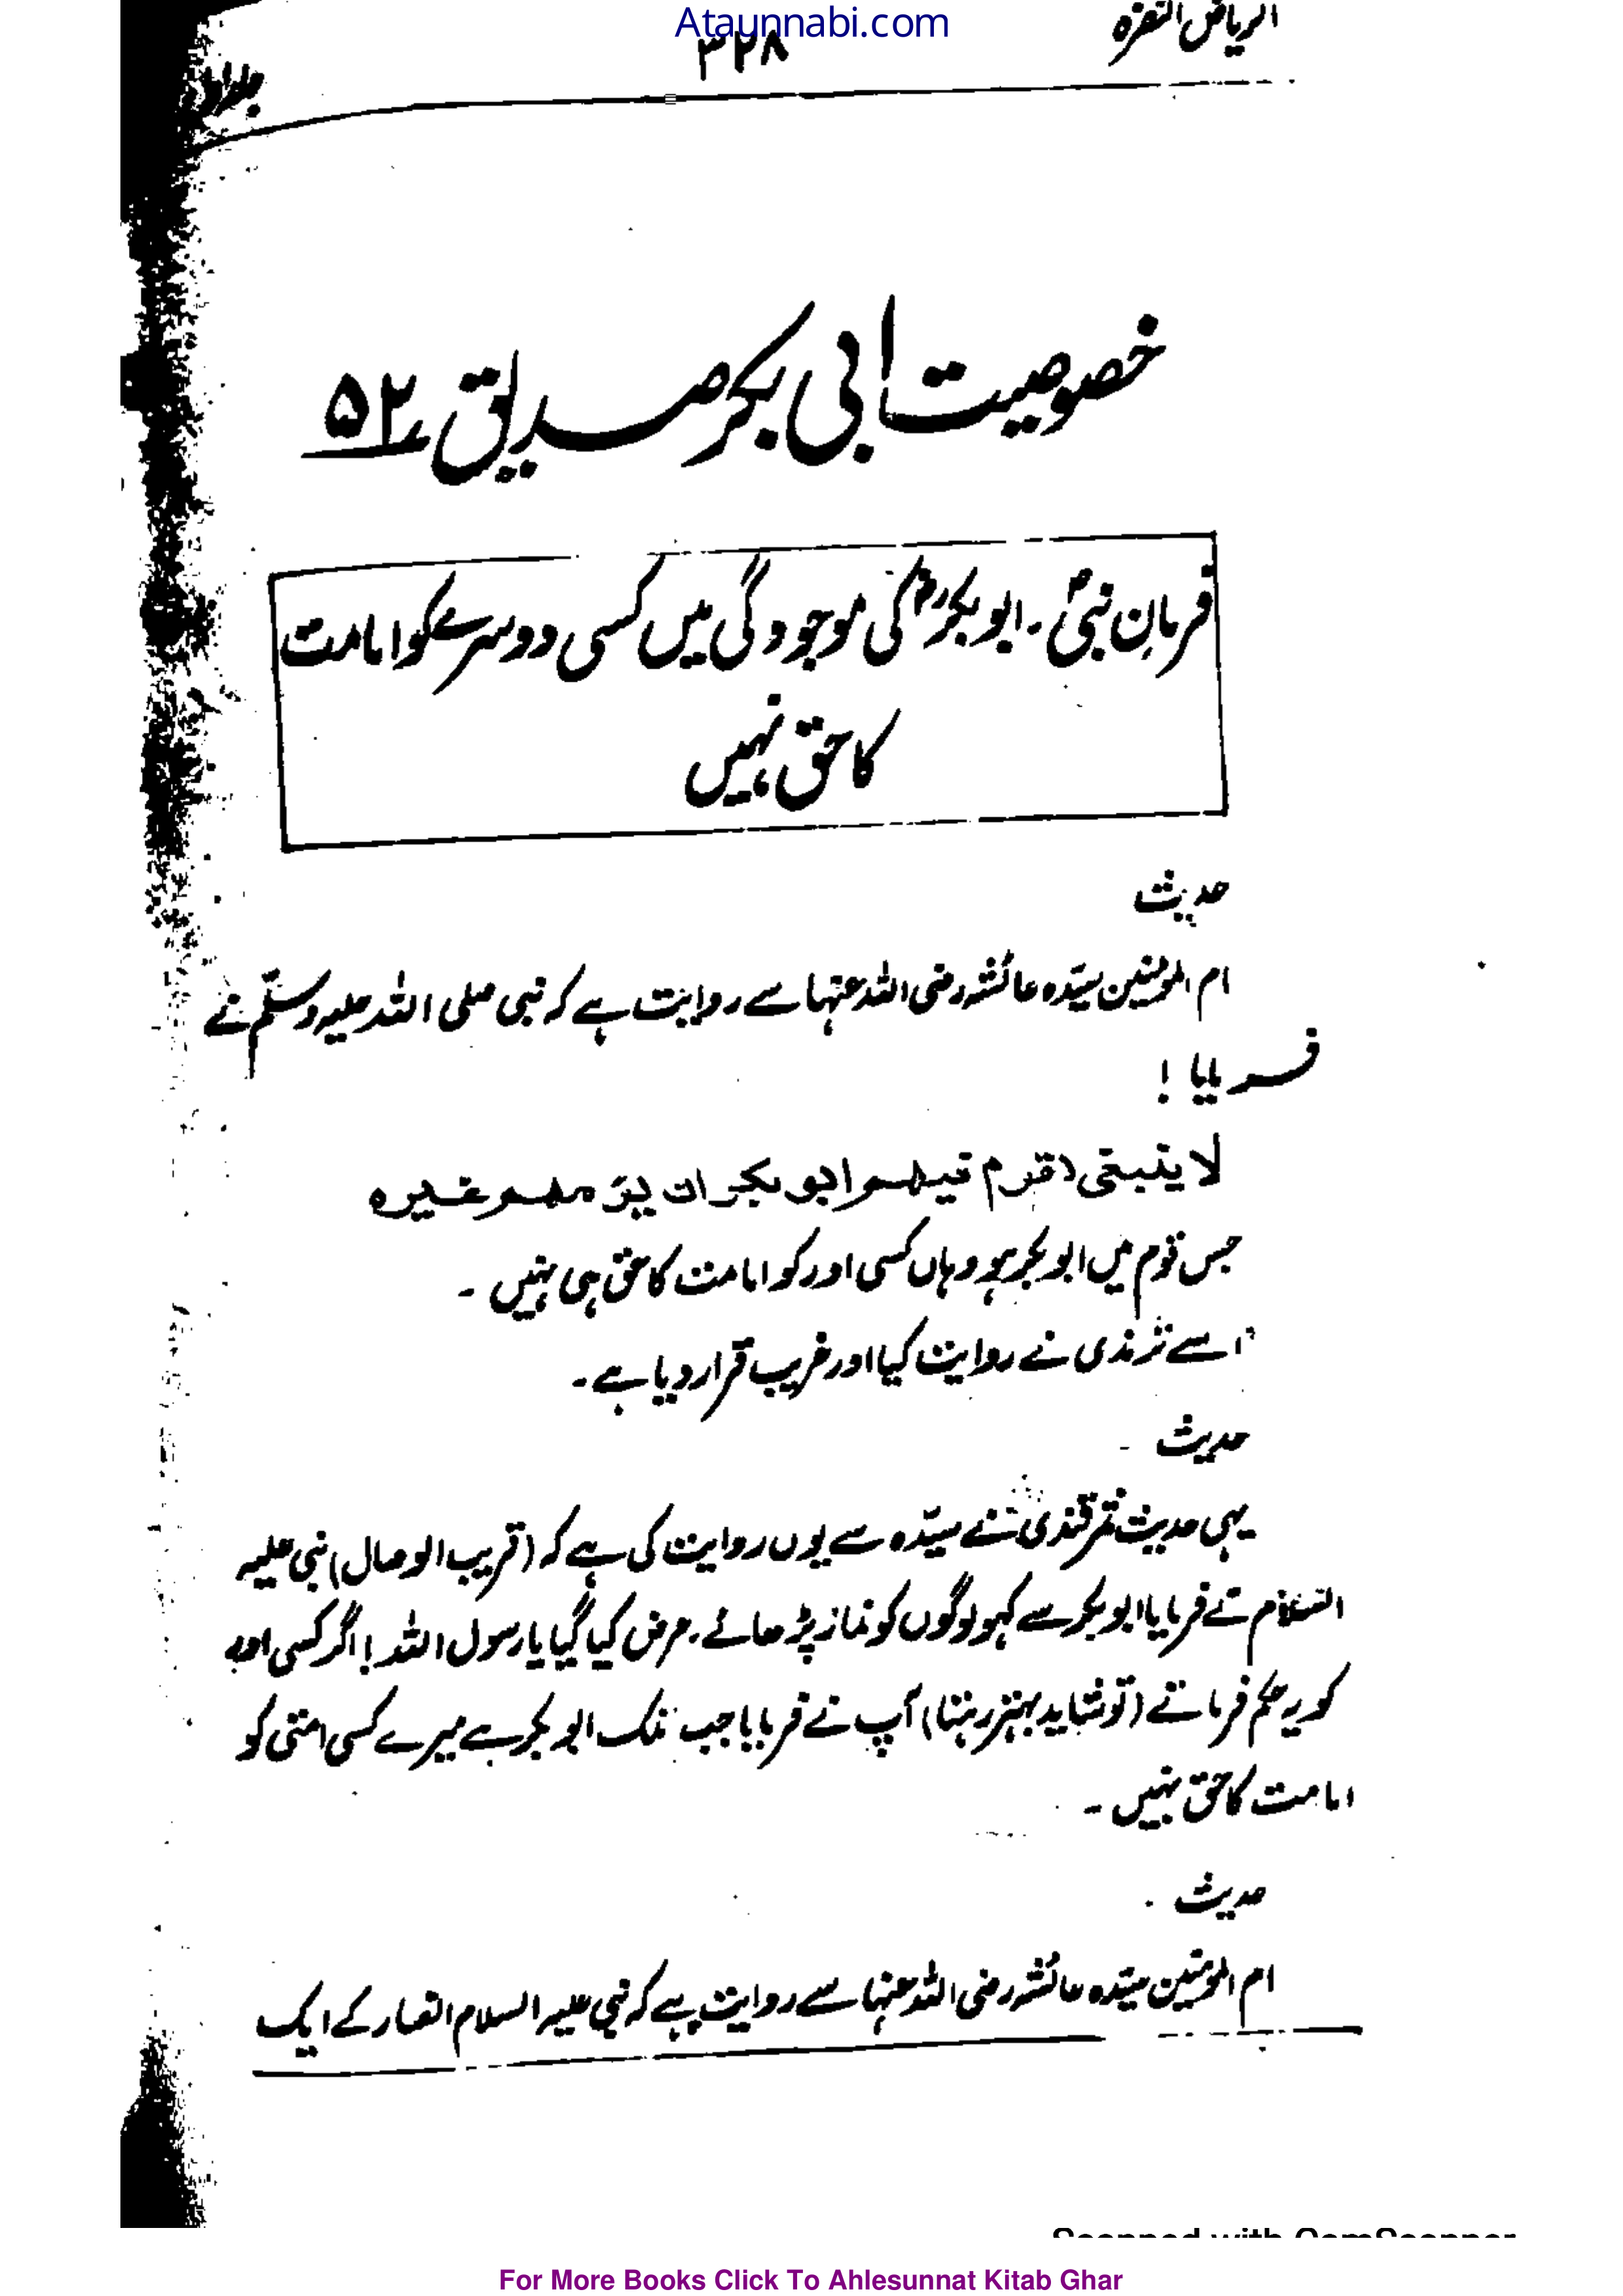 Ataunnabi.com
الریاض النضرہ
۳۲۸
جلد اول
خصوصیت ابی بکر صدیق ۵۲
فرمانِ نبیؐ ۔ ابوبکرؓ کی موجودگی میں کسی دوسرے کو امامت
کا حق نہیں
حدیث
ام المومنین سیّدہ عائشہ رضی اللہ عنہا سے روایت ہے کہ نبی صلی اللہ علیہ وسلّم نے
فرمایا !
لا ینبغی لقوم فیہم ابو بکر ان یؤمہم غیرہ
جس قوم میں ابوبکر ہو وہاں کسی اور کو امامت کا حق ہی نہیں ۔
اسے ترمذی نے روایت کیا اور غریب قرار دیا ہے ۔
حدیث ۔
یہی حدیث ثمرقندی نے سیّدہ سے یوں روایت کی ہے کہ (قریب الوصال) نبی علیہ
السلام نے فرمایا ابوبکر سے کہو لوگوں کو نماز پڑھائے ۔ عرض کیا گیا یا رسول اللہ! اگر کسی اور
کو یہ حکم فرماتے (تو شاید بہتر رہتا) آپ نے فرمایا جب تک ابوبکر ہے میرے کسی امتی کو
امامت کا حق نہیں ۔
حدیث ۔
ام المومنین سیّدہ عائشہ رضی اللہ عنہا سے روایت ہے کہ نبی علیہ السلام انصار کے ایک
Scanned with CamScanner
For More Books Click To Ahlesunnat Kitab Ghar